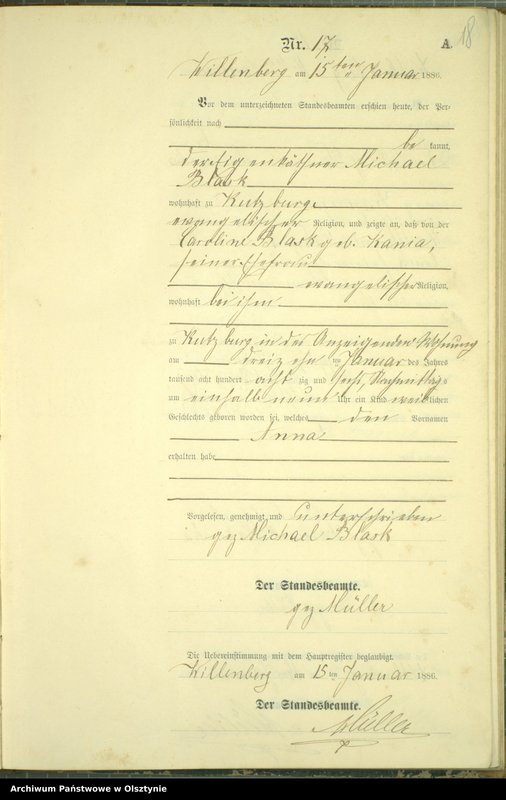 18
Nr. 17 A.
Willenberg am 15ten Januar 1886.
Vor dem unterzeichneten Standesbeamten erschien heute, der Per-
sönlichkeit nach
be kannt,
der Eigenkäthner Michael
Blask
wohnhaft zu Kutzburg
evangelischer Religion, und zeigte an, daß von der
Caroline Blask geb. Kania,
seiner Ehefrau
evangelischer Religion,
wohnhaft bei ihm
zu Kutzburg in des Anzeigenden Wohnung
am dreizehn ten Januar des Jahres
tausend acht hundert acht zig und sechs, Nachmittags
um einhalb neun Uhr ein Kind weiblichen
Geschlechts geboren worden sei, welches den Vornamen
Anna
erhalten habe
Vorgelesen, genehmigt und unterschrieben
gez Michael Blask
Der Standesbeamte.
gez Müller
Die Uebereinstimmung mit dem Hauptregister beglaubigt.
Willenberg am 15ten Januar 1886.
Der Standesbeamte.
Müller
Archiwum Państwowe w Olsztynie